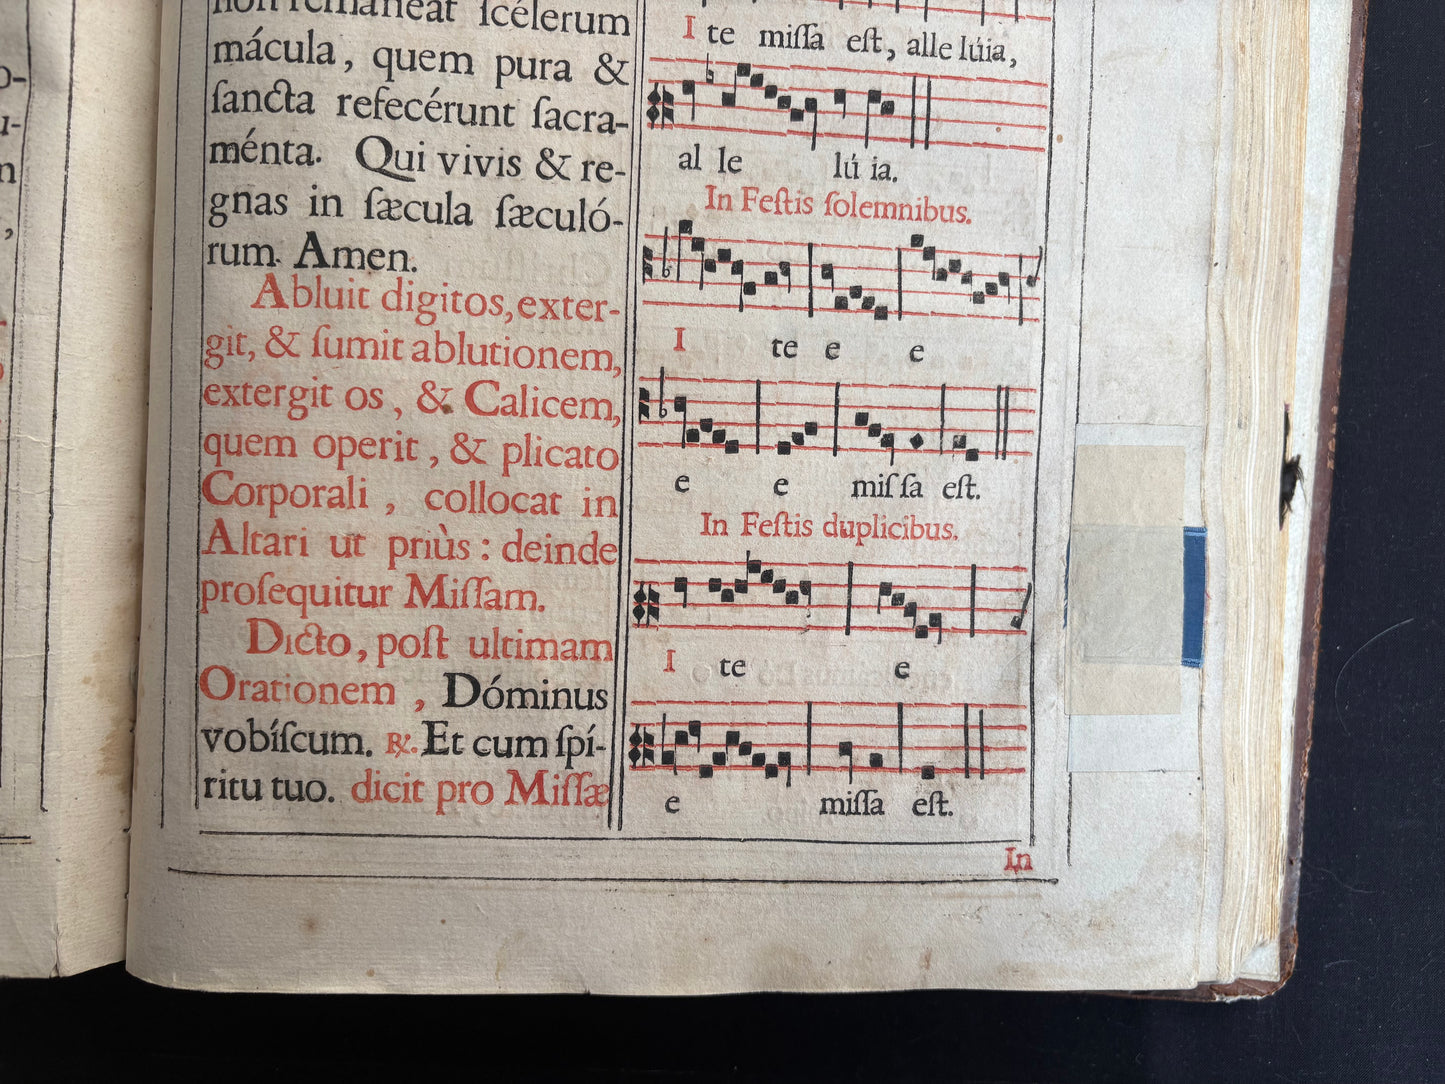 non remaneat ſcélerum
mácula, quem pura &
ſancta refecérunt ſacra-
ménta. Qui vivis & re-
gnas in ſæcula ſæculó-
rum. Amen.
Abluit digitos, exter-
git, & ſumit ablutionem,
extergit os, & Calicem,
quem operit, & plicato
Corporali, collocat in
Altari ut priùs: deinde
proſequitur Miſſam.
Dicto, poſt ultimam
Orationem, Dóminus
vobíſcum. ℟. Et cum ſpí-
ritu tuo. dicit pro Miſſæ
I te miſſa eſt, alle lúia,
al le lú ia.
In Feſtis ſolemnibus.
I te e e
e e miſ ſa eſt.
In Feſtis duplicibus.
I te e
e miſſa eſt.
In